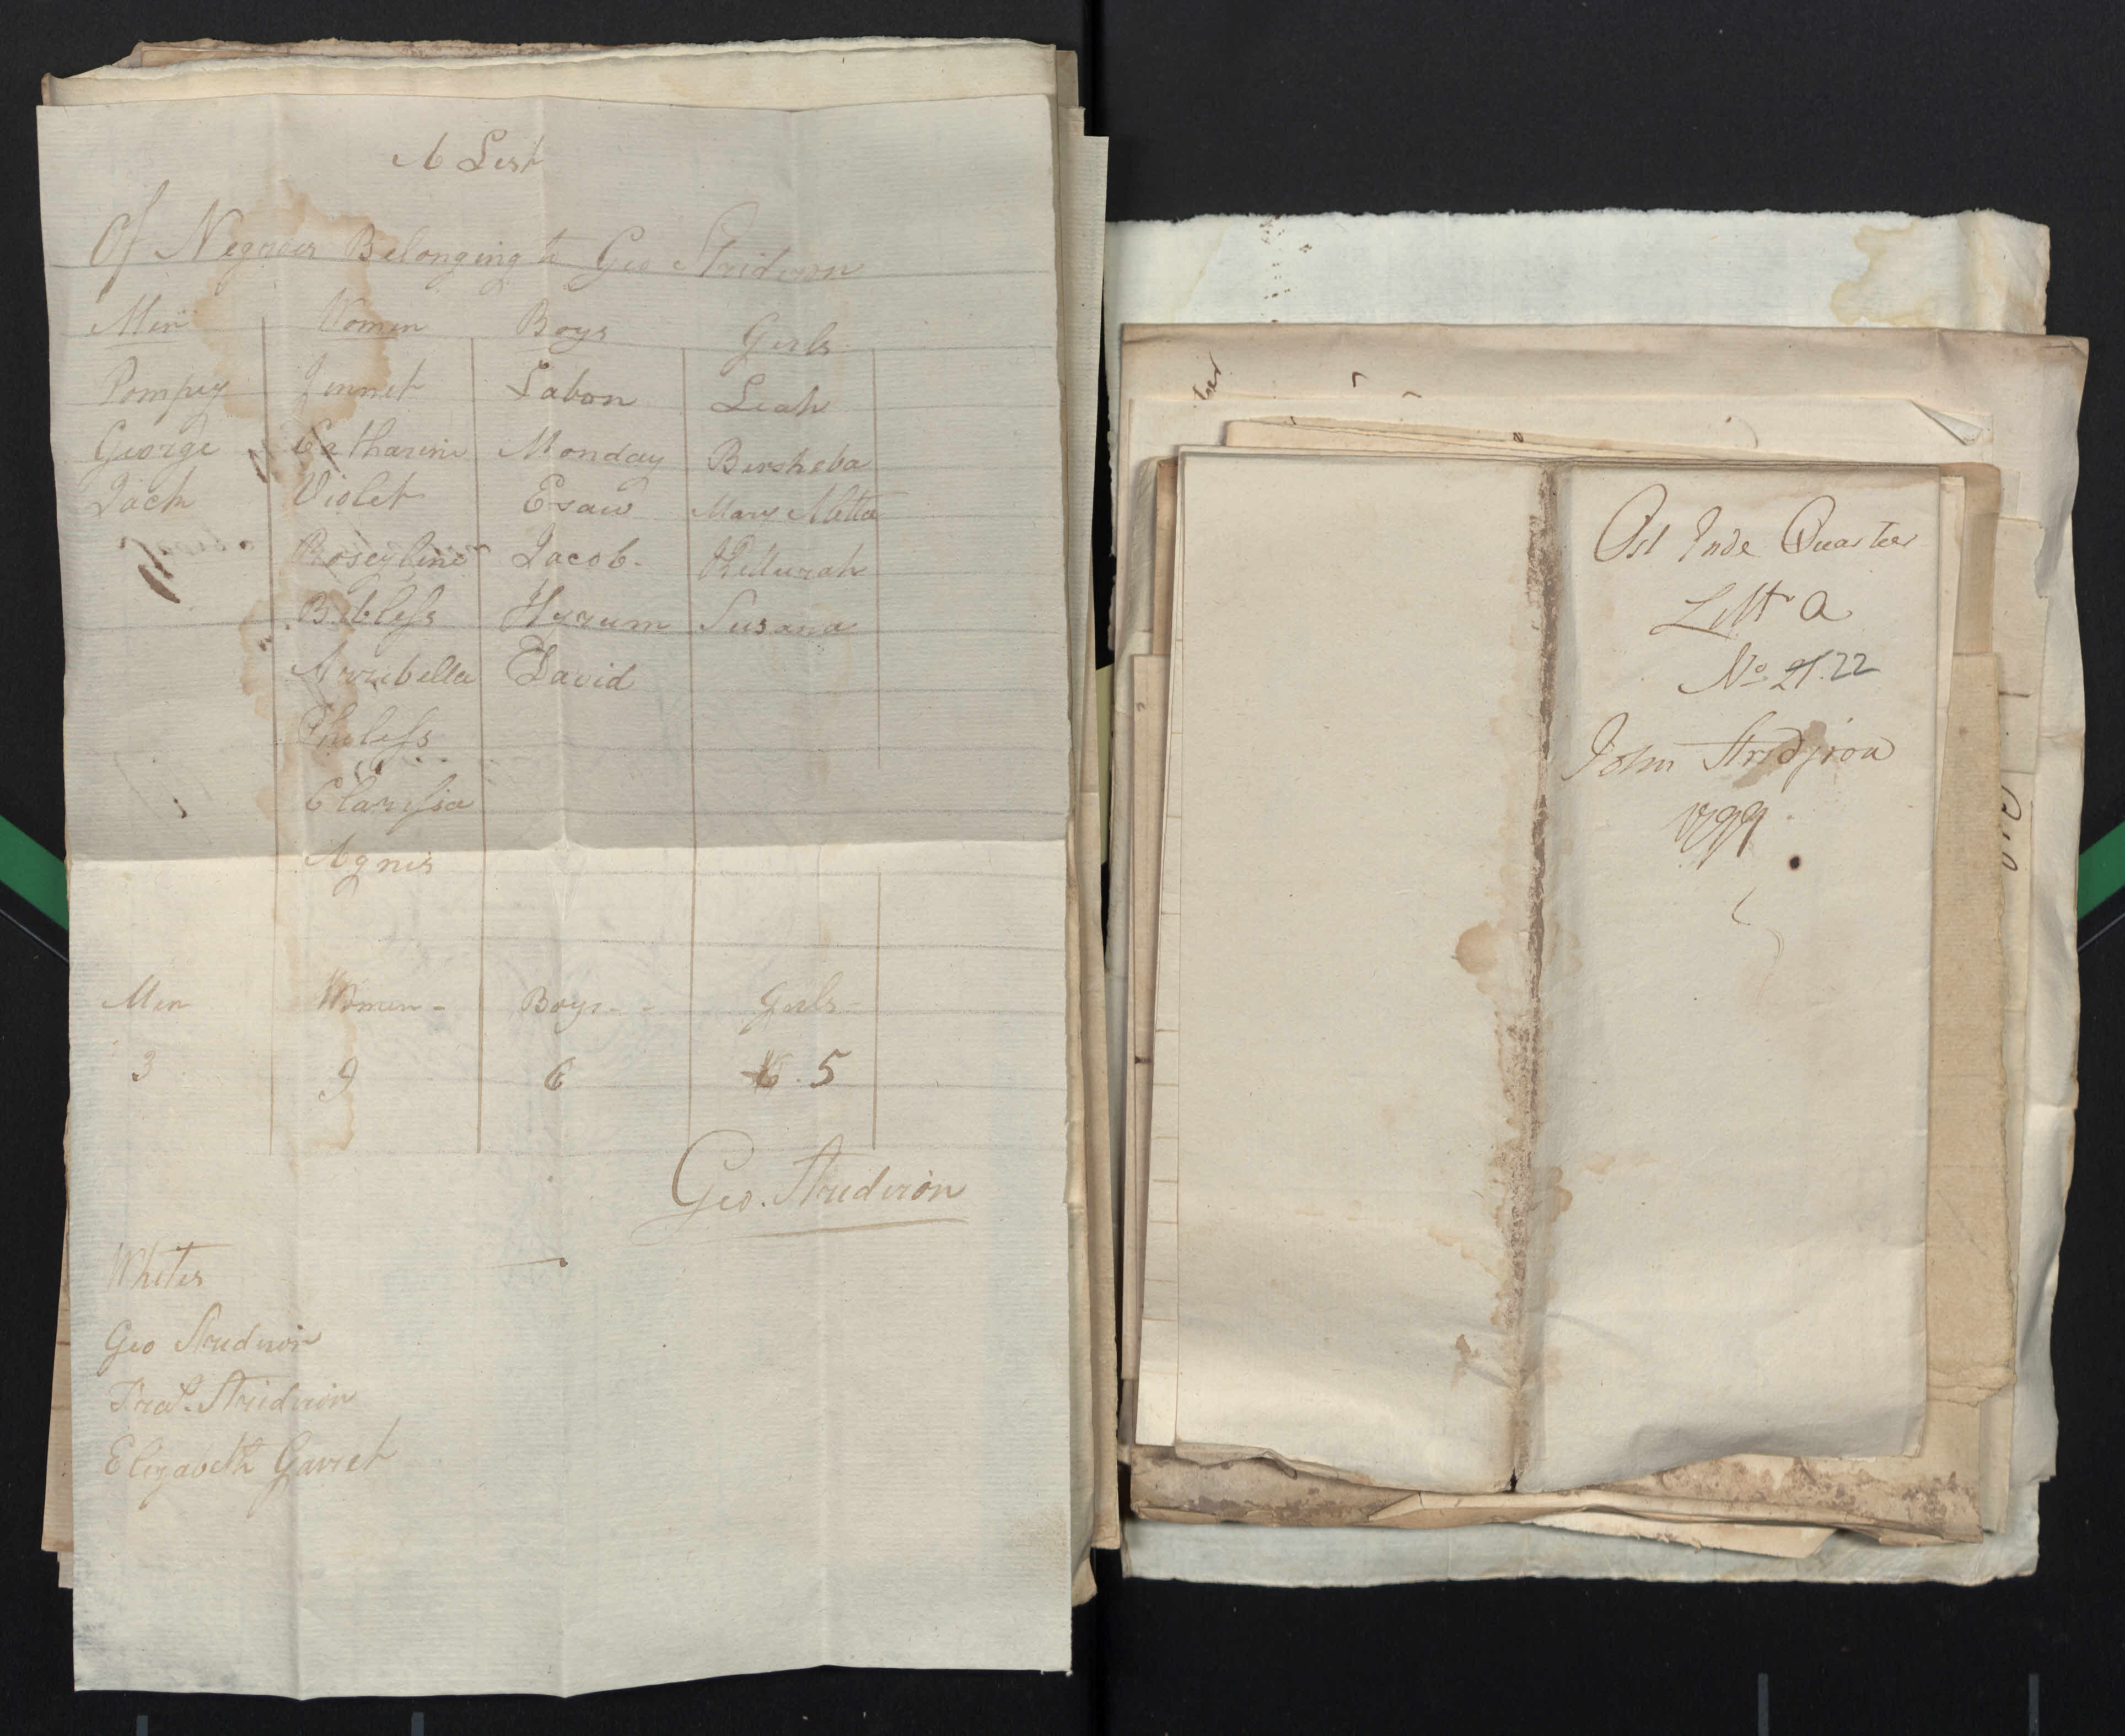 A List
Of Negroes Belonging to Geo Stridiron
Men Women Boys Girls
Pompey Jennet Labon Leah
George Catharine Monday Bersheba
Jack Violet Esaw Mary Metta
Roseyline Jacob. Kellurah
Bibless Hyrum Susana
Arrabella David
Phebess
Claressia
Agnes
Men Women - Boys - - Girls -
3 9 6 5
Geo. Stridiron
Whites
Geo Stridiron
Fred. Stridiron
Elizabeth Garret
Ost Inde Quarteer
Litt A
No 21. 22
John Stridjron
1799